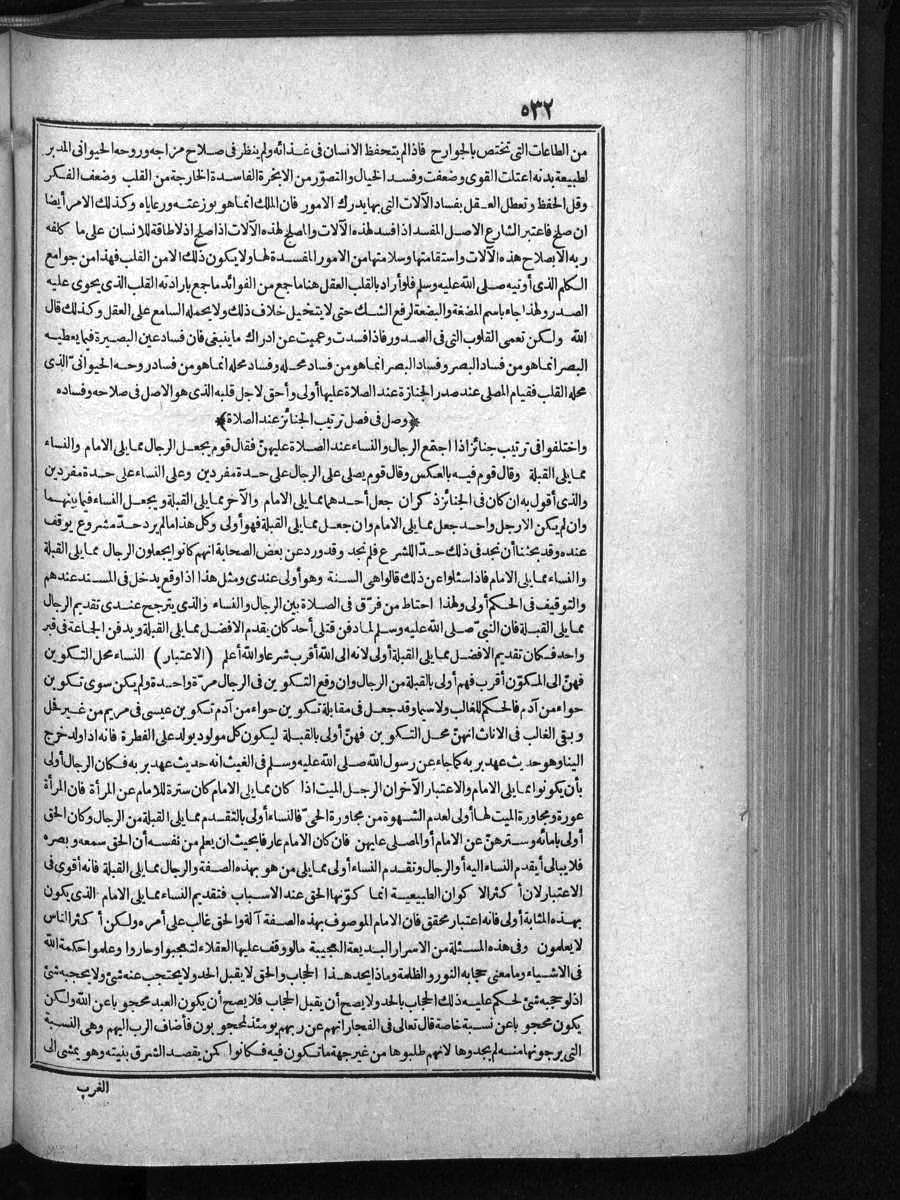 ٥٣٢
من الطاعات التي تختص بالجوارح فاذا لم يتحفظ الانسان في غذائه ولم ينظر في صلاح مزاجه وروحه الحيواني المدبر
لطبيعة بدنه اعتلت القوى وضعفت وفسد الخيال والتصور من الابخرة الفاسدة الخارجة من القلب وضعف الفكر
وقل الحفظ وتعطل العقل بفساد الآلات التي بها يدرك الامور فان الملك انما هو بوزعته ورعاياه وكذلك الامر أيضا
ان صلح فاعتبر الشارع الاصل المفسد اذا فسد لهذه الآلات والمصلح لهذه الآلات اذا صلح اذ لا طاقة للانسان على ما كلفه
ربه الا بصلاح هذه الآلات واستقامتها وسلامتها من الامور المفسدة لها ولا يكون ذلك الا من القلب فهذا من جوامع
الكلم الذى أوتيه صلى الله عليه وسلم فلو أراد بالقلب العقل هنا ما جمع من الفوائد ما جمع بارادته القلب الذى يحوى عليه
الصدر ولهذا جاء باسم المضغة والبضعة لرفع الشك حتى لا يتخيل خلاف ذلك ولا يحمله السامع على العقل وكذلك قال
الله ولكن تعمى القلوب التي فى الصدور فاذا فسدت وعميت عن ادراك ما ينبغى فان فساد عين البصيرة فيما يعطيه
البصر انما هو من فساد البصر وفساد البصر انما هو من فساد محله وفساد محله انما هو من فساد روحه الحيوانى الذى
محله القلب فقيام المصلى عند صدر الجنازة عند الصلاة عليها أولى وأحق لاجل قلبه الذى هو الاصل فى صلاحه وفساده
﴿وصل فى فصل ترتيب الجنائز عند الصلاة﴾
واختلفوا فى ترتيب جنائز اذا اجتمع الرجال والنساء عند الصلاة عليهن فقال قوم يجعل الرجال مما يلى الامام والنساء
مما يلى القبلة وقال قوم فيه بالعكس وقال قوم يصلى على الرجال على حدة مفردين وعلى النساء على حدة مفردين
والذى أقول به ان كان فى الجنائز ذكران جعل أحدهما مما يلى الامام والآخر مما يلى القبلة ويجعل النساء فيما بينهما
وان لم يكن الا رجل واحد جعل مما يلى الامام وان جعل مما يلى القبلة فهو أولى وكل هذا ما لم يرد حد مشروع يوقف
عنده وقد بحثنا أن نجد فى ذلك حدا للشرع فلم نجد وقد ورد عن بعض الصحابة انهم كانوا يجعلون الرجال مما يلى القبلة
والنساء مما يلى الامام فاذا سئلوا عن ذلك قالوا هى السنة وهو أولى عندى ومثل هذا اذا وقع يدخل فى المسند عندهم
والتوقيف فى الحكم أولى ولهذا احتاط من فرق فى الصلاة بين الرجال والنساء والذى يترجح عندى تقديم الرجال
مما يلى القبلة فان النبى صلى الله عليه وسلم لما دفن قتلى أحد كان يقدم الافضل مما يلى القبلة ويدفن الجماعة فى قبر
واحد فكان تقديم الافضل مما يلى القبلة أولى لانه الى الله أقرب شرعا والله أعلم (الاعتبار) النساء محل التكوين
فهن الى المكون أقرب فهم أولى بالقبلة من الرجال وان وقع التكوين فى الرجال مرة واحدة ولم يكن سوى تكوين
حواء من آدم فالحكم للغالب ولا سيما وقد جعل فى مقابلة تكوين حواء من آدم تكوين عيسى فى مريم من غير فحل
وبقى الغالب فى الاناث انهن محل التكوين فهن أولى بالقبلة ليكون كل مولود يولد على الفطرة فانه اذا ولد خرج
الينا وهو حديث عهد بربه كما جاء عن رسول الله صلى الله عليه وسلم فى الغيث انه حديث عهد بربه فكان الرجال أولى
بأن يكونوا مما يلى الامام والاعتبار الآخر ان الرجل الميت اذا كان مما يلى الامام كان سترة للامام عن المرأة فان المرأة
عورة ومجاورة الميت لها أولى لعدم الشهوة من مجاورة الحى فالنساء أولى بالتقدم مما يلى القبلة من الرجال وكان الحق
أولى بامائه وسترهن عن الامام أو المصلى عليهن فان كان الامام عارفا بحيث ان يعلم من نفسه أن الحق سمعه وبصره
فلا يبالى أيقدم النساء اليه أو الرجال وتقدم النساء أولى مما يلى من هو بهذه الصفة والرجال مما يلى القبلة فانه أقوى فى
الاعتبار لان أكثر الا كوان الطبيعية انما كونها الحق عند الاسباب فتقديم النساء مما يلى الامام الذى يكون
بهذه المثابة أولى فانه اعتبار محقق فان الامام الموصوف بهذه الصفة آلة والحق غالب على أمره ولكن أكثر الناس
لا يعلمون وفى هذه المسئلة من الاسرار البديعة العجيبة ما لو وقف عليها العقلاء لتعجبوا وحاروا وعلموا حكمة الله
فى الاشياء وما معنى حجابه النور والظلمة وماذا يحد هذا الحجاب والحق لا يقبل الحد ولا يحتجب عنه شئ ولا يحجبه شئ
اذ لو حجبه شئ لحكم عليه ذلك الحجاب بالحد ولا يصح أن يقبل الحجاب فلا يصح أن يكون العبد محجوبا عن الله ولكن
يكون محجوبا عن نسبة خاصة قال تعالى فى الفجار انهم عن ربهم يومئذ لمحجوبون فأضاف الرب اليهم وهى النسبة
التى يرجونها منه لم يجدوها لانهم طلبوها من غير جهة ما تكون فيه فكانوا كمن يقصد الشرق بنيته وهو يمشى الى
الغرب